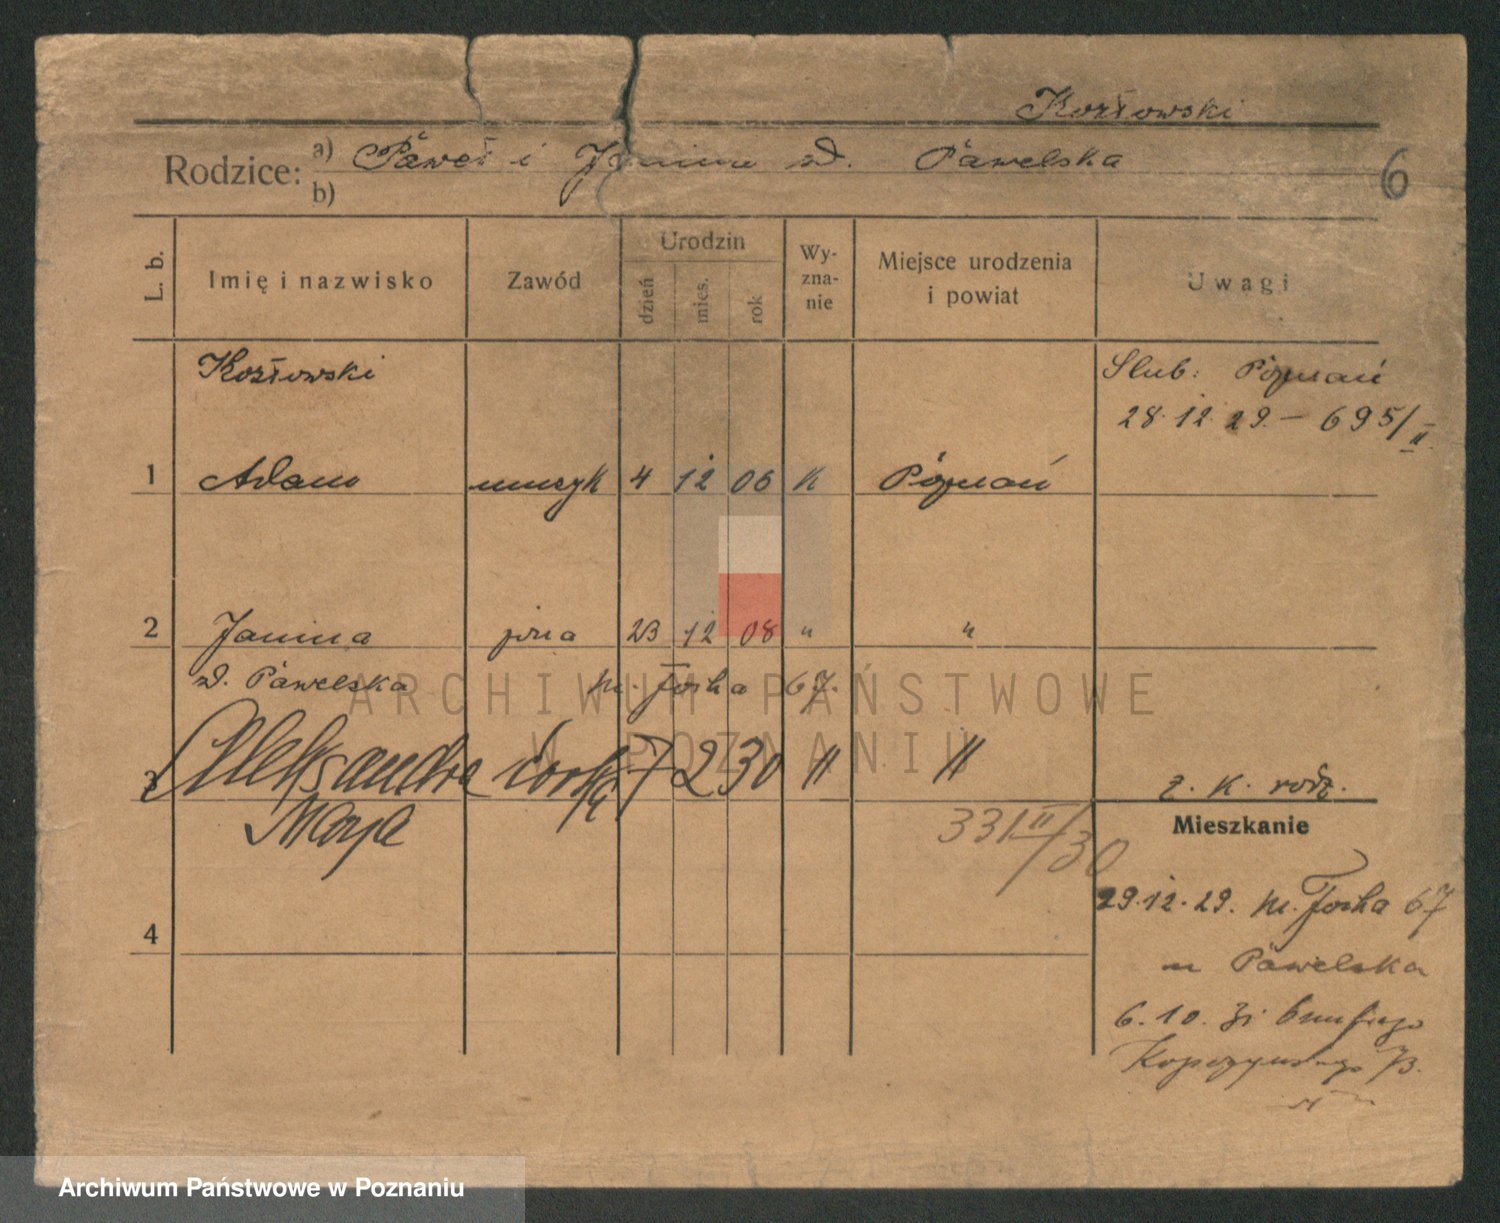 Kozłowski
Rodzice: a) Paweł i Janina zd. Pawelska
b)
6
L. b.
Imię i nazwisko
Zawód
Urodzin
dzień
mies.
rok
Wy-
zna-
nie
Miejsce urodzenia
i powiat
Uwagi
Kozłowski
Ślub: Poznań
28.12.29. – 695/II.
1 Adam muzyk 4 12 06 K Poznań
2 Janina żona 23 12 08 " "
zd. Pawelska m. Focha 67.
ARCHIWUM PAŃSTWOWE
W POZNANIU
3 Aleksandra córka 7 2 30 " "
z. k. rodz.
Maria
331 II/30
Mieszkanie
29.12.29. m. Focha 67
4
u Pawelska
6.10.
Archiwum Państwowe w Poznaniu